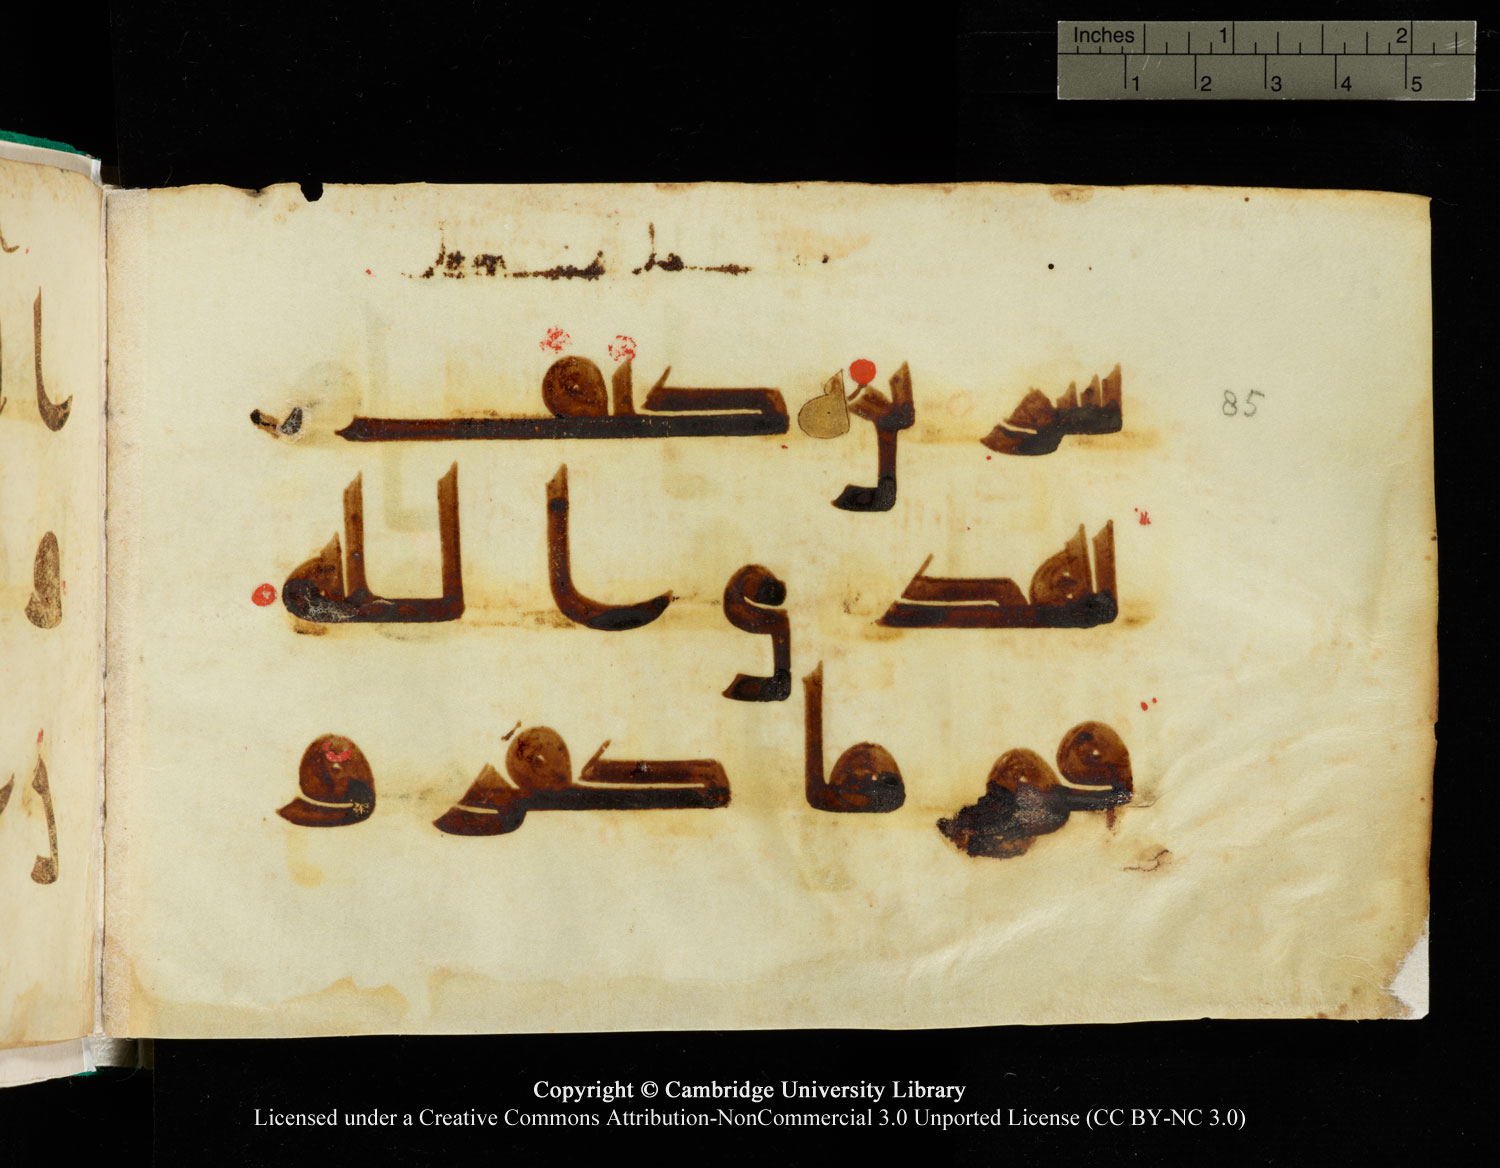 Inches 1 2
1 2 3 4 5
سرين كيف
85
يهدى الله
قوما كفرو
Copyright © Cambridge University Library
Licensed under a Creative Commons Attribution-NonCommercial 3.0 Unported License (CC BY-NC 3.0)